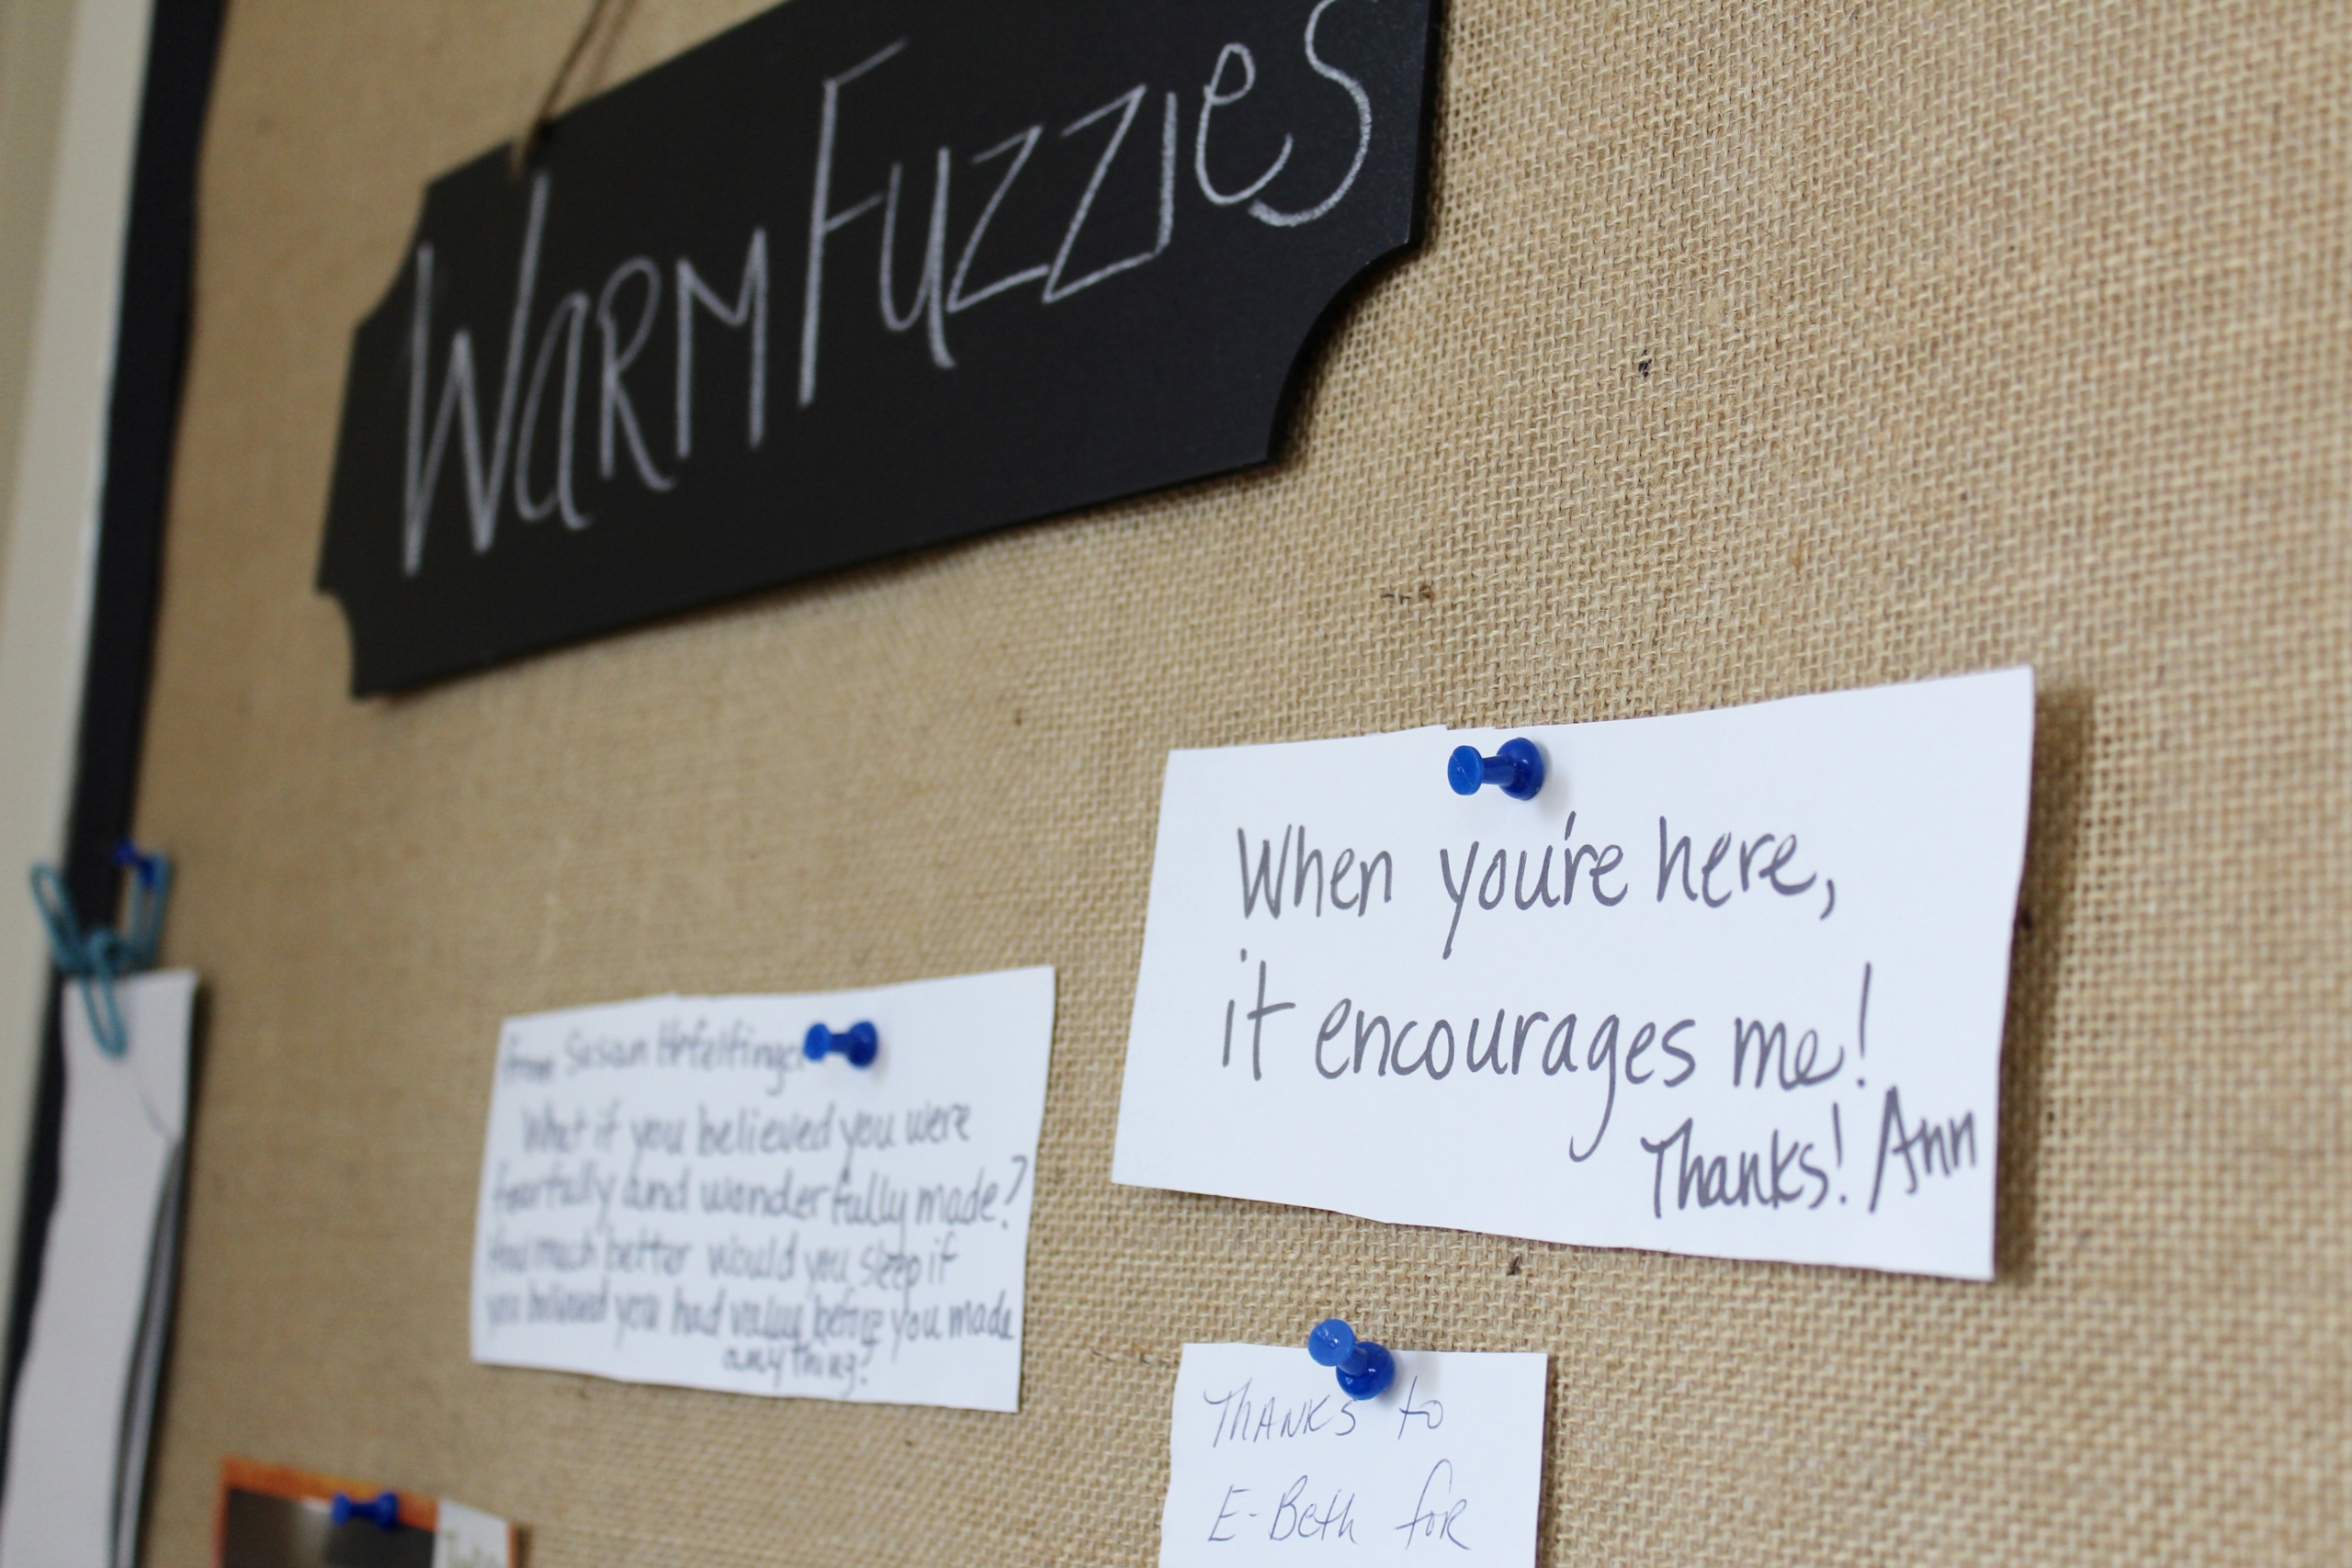 WARM FUZZIES
When you're here,
it encourages me!
Thanks! Ann
from Susan
What if you believed you were
fearfully and wonderfully made?
How much better would you sleep if
you believed you had value before you made
anything?
THANKS to
E-Beth for